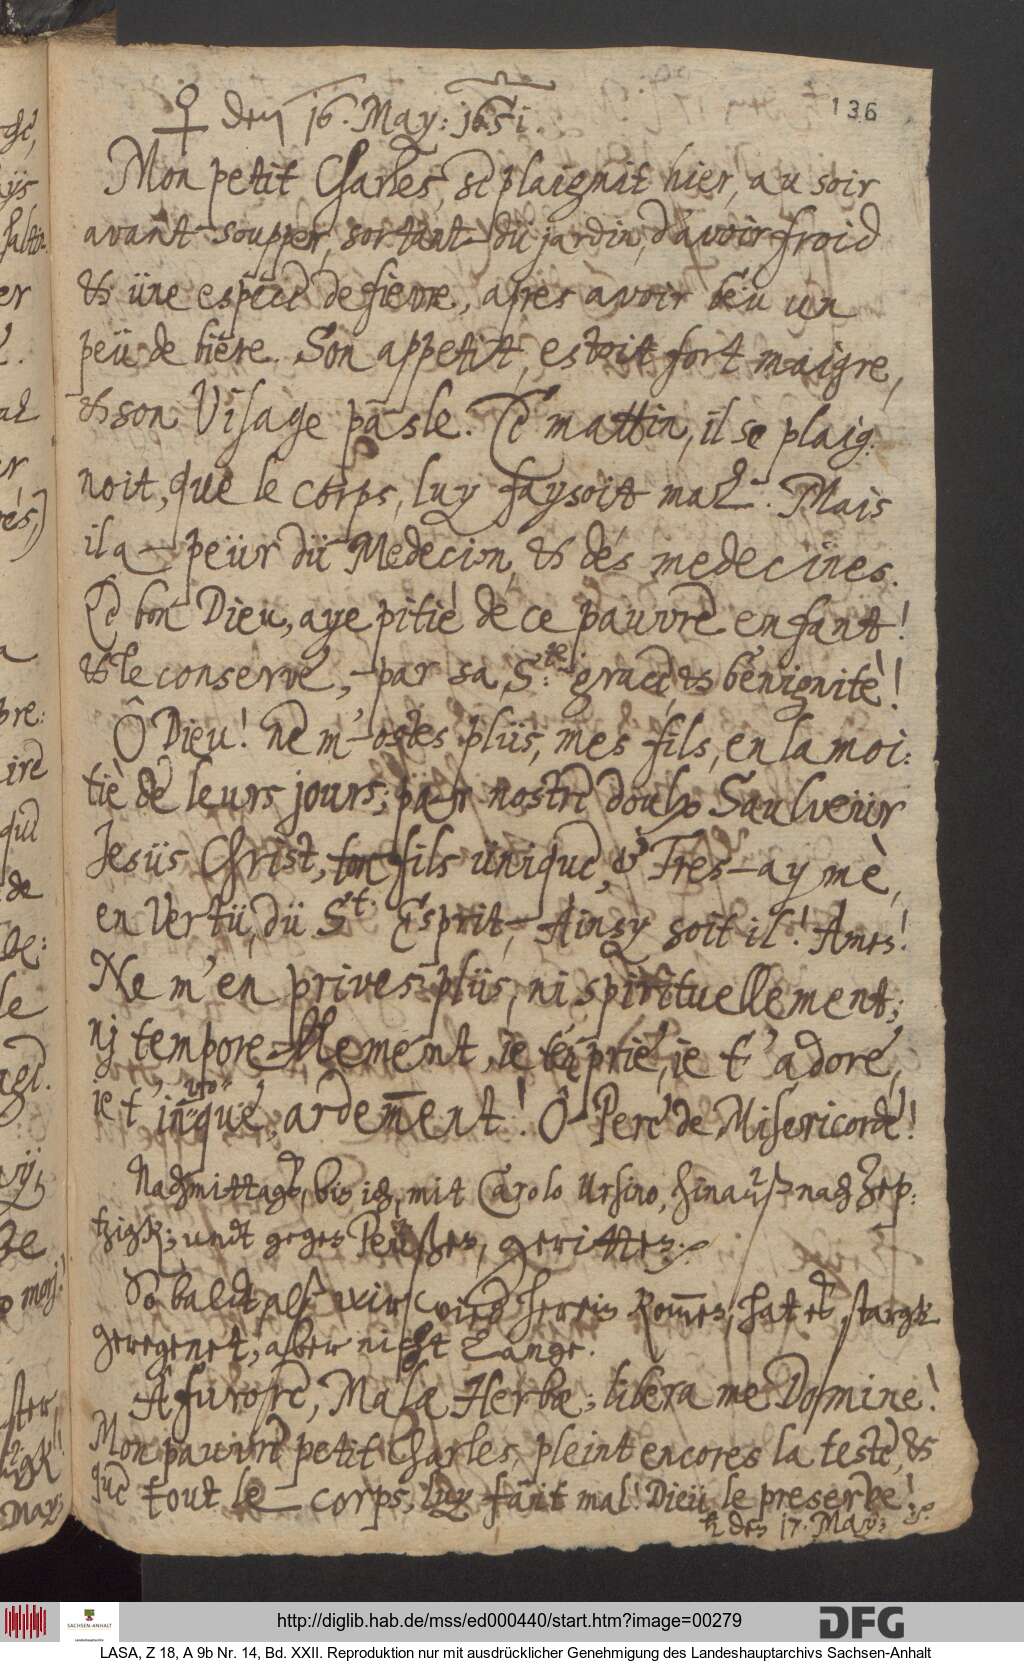 136
♀ den 16. May: 1651.
Mon petit Charles, se plaignit hier, au soir
avant soupper, sortant du jardin, d'avoir froid
& üne espèce de fievre, apres avoir beü un
peü de biere. Son appetit, estoit fort maigre,
& son Visage pasle. Ce mattin, il se plaig:
noit, que le corps, luy faysoit mal. Mais
il a peür dü Medecin, & des medecines.
Le bon Dieu, aye pitiè de ce pauvre enfant!
& le conserve, par sa Ste: grace, & benignitè!
Ô Dieu! ne m'ostes plüs, mes fils, en la moi:
tiè de leurs jours, par nostre doulx Saulveür
Jesüs Christ, ton fils ünique, & Tres-aymè,
en Vertü, dü St. Esprit, Ainsy soit il! Amen!
Ne m'en prives plüs, ni spirituellement,
nj temporellement, ie te prie, ie t'adore,
ie t'invoque, ardemment! Ô Pere de Misericorde!
Nachmittagß, bin ich, mit Carolo Ursino, hinauß nach Zep:
tzigk; undt gegen Peüßen, geritten.
So baldt alß wir wied herein kommen, hat es, stargk
geregenet, aber nicht Lange.
A furore, Malæ Herbæ; libera me Domine!
Mon pauvre petit Charles, pleint encores la teste, &
que tout le corps, luy fait mal! Dieü le preserve!
♄ den 17. May:
http://diglib.hab.de/mss/ed000440/start.htm?image=00279
DFG
SACHSEN-ANHALT
LASA, Z 18, A 9b Nr. 14, Bd. XXII. Reproduktion nur mit ausdrücklicher Genehmigung des Landeshauptarchivs Sachsen-Anhalt